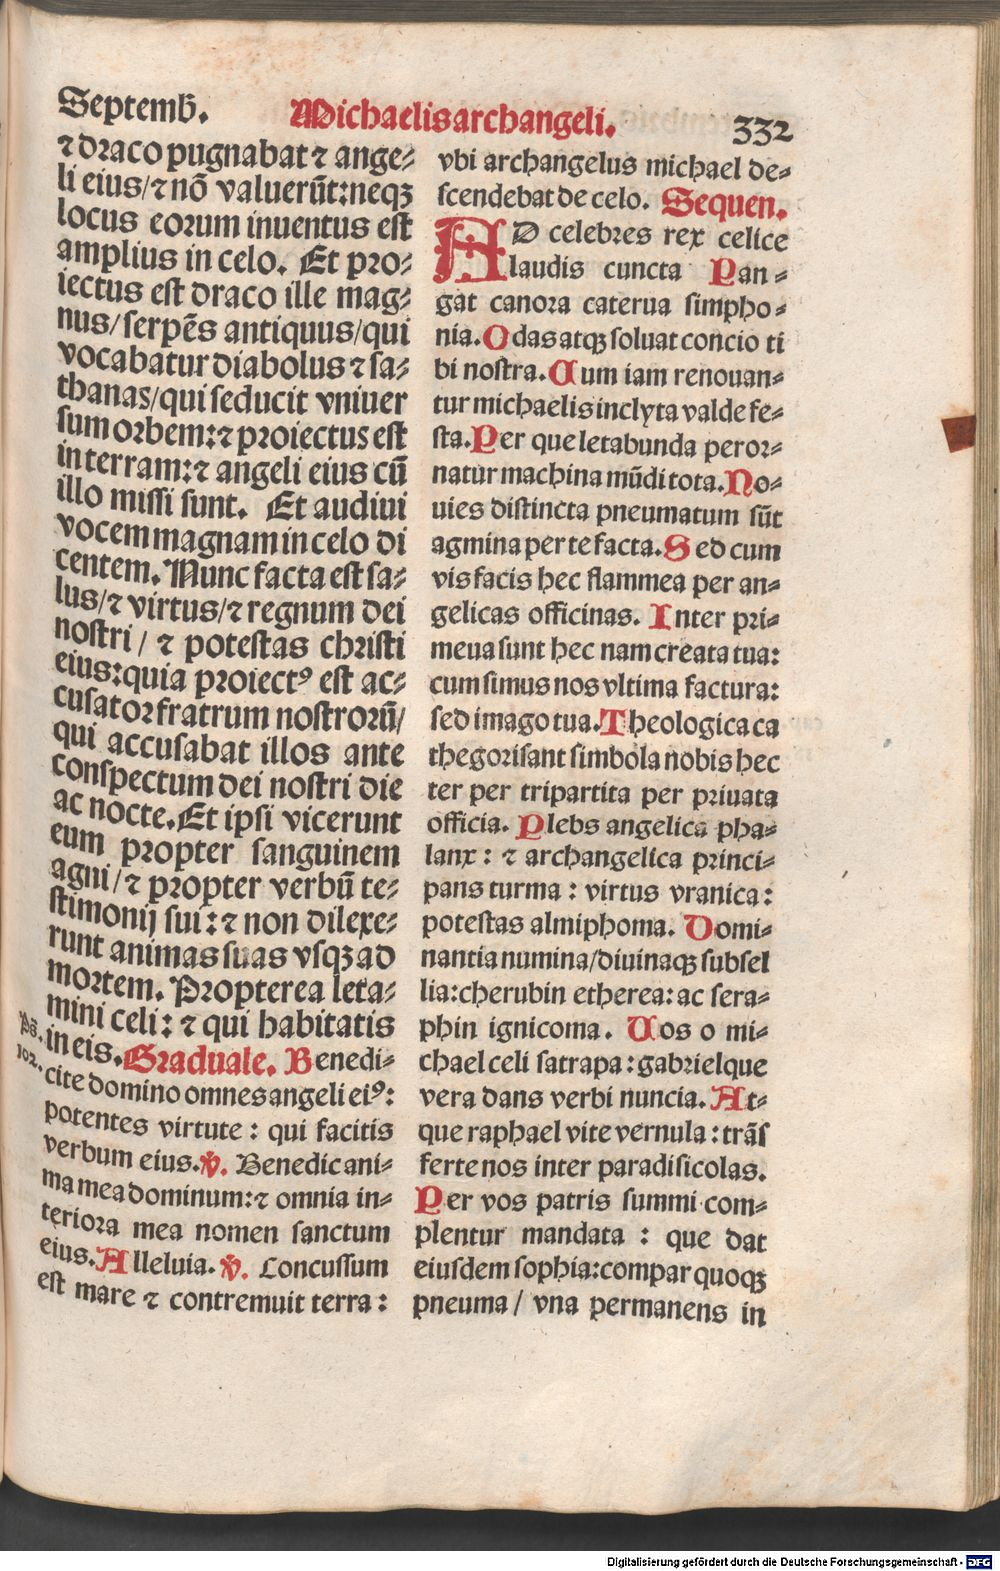 Septemb̄.
Michaelis archangeli.
332
⁊ draco pugnabat ⁊ ange⸗
li eius/ ⁊ nō valuerūt: neqꝫ
locus eorum inuentus est
amplius in celo. Et pro⸗
iectus est draco ille mag⸗
nus/ serpēs antiquus/ qui
vocabatur diabolus ⁊ sa⸗
thanas/ qui seducit vniuer
sum orbem: ⁊ proiectus est
in terram: ⁊ angeli eius cū
illo missi sunt. Et audiui
vocem magnam in celo di
centem. Nunc facta est sa⸗
lus/ ⁊ virtus/ ⁊ regnum dei
nostri/ ⁊ potestas christi
eius: quia proiectꝰ est ac⸗
cusator fratrum nostrorū/
qui accusabat illos ante
conspectum dei nostri die
ac nocte. Et ipsi vicerunt
eum propter sanguinem
agni/ ⁊ propter verbū te⸗
stimonij sui: ⁊ non dilexe⸗
runt animas suas vsqꝫ ad
mortem. Propterea leta⸗
mini celi: ⁊ qui habitatis
Ps̄. in eis. Graduale. Benedi⸗
102. cite domino omnes angeli eiꝰ:
potentes virtute: qui facitis
verbum eius. ℣. Benedic ani⸗
ma mea dominum: ⁊ omnia in⸗
teriora mea nomen sanctum
eius. Alleluia. ℣. Concussum
est mare ⁊ contremuit terra:
vbi archangelus michael de⸗
scendebat de celo. Sequen.
AD celebres rex celice
laudis cuncta Pan⸗
gat canora caterua simpho⸗
nia. Odas atqꝫ soluat concio ti
bi nostra. Cum iam renouan⸗
tur michaelis inclyta valde fe⸗
sta. Per que letabunda peror⸗
natur machina mūdi tota. No⸗
uies distincta pneumatum sūt
agmina per te facta. Sed cum
vis facis hec flammea per an⸗
gelicas officinas. Inter pri⸗
meua sunt hec nam creata tua:
cum simus nos vltima factura:
sed imago tua. Theologica ca
thegorisant simbola nobis hec
ter per tripartita per priuata
officia. Plebs angelica pha⸗
lanx: ⁊ archangelica princi⸗
pans turma: virtus vranica:
potestas almiphoma. Domi⸗
nantia numina/ diuinaqꝫ subsel
lia: cherubin etherea: ac sera⸗
phin ignicoma. Uos o mi⸗
chael celi satrapa: gabrielque
vera dans verbi nuncia. At⸗
que raphael vite vernula: trās
ferte nos inter paradisicolas.
Per vos patris summi com⸗
plentur mandata: que dat
eiusdem sophia: compar quoqꝫ
pneuma/ vna permanens in
Digitalisierung gefördert durch die Deutsche Forschungsgemeinschaft - DFG